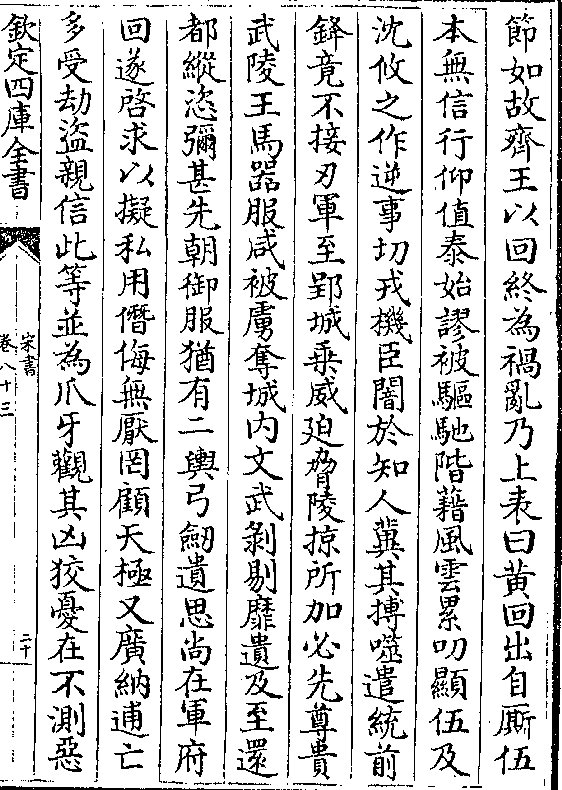 節如故齊王以回終為禍亂乃上表曰黄回出自厮伍
本無信行仰值泰始謬被驅馳階藉風雲累叨顯伍及
沈攸之作逆事切戎機臣闇於知人冀其搏噬遣統前
鋒竟不接刃軍至郢城乗威迫脅陵掠所加必先尊貴
武陵王馬器服咸被虜奪城内文武剝剔靡遺及至還
都縱恣彌甚先朝御服猶有二輿弓劒遺思尚在軍府
回遂啓求以擬私用僭侮無厭罔顧天極又廣納逋亡
多受劫盜親信此等並為爪牙觀其凶狡憂在不測惡
欽定四庫全書
宋書
卷八十三
二十